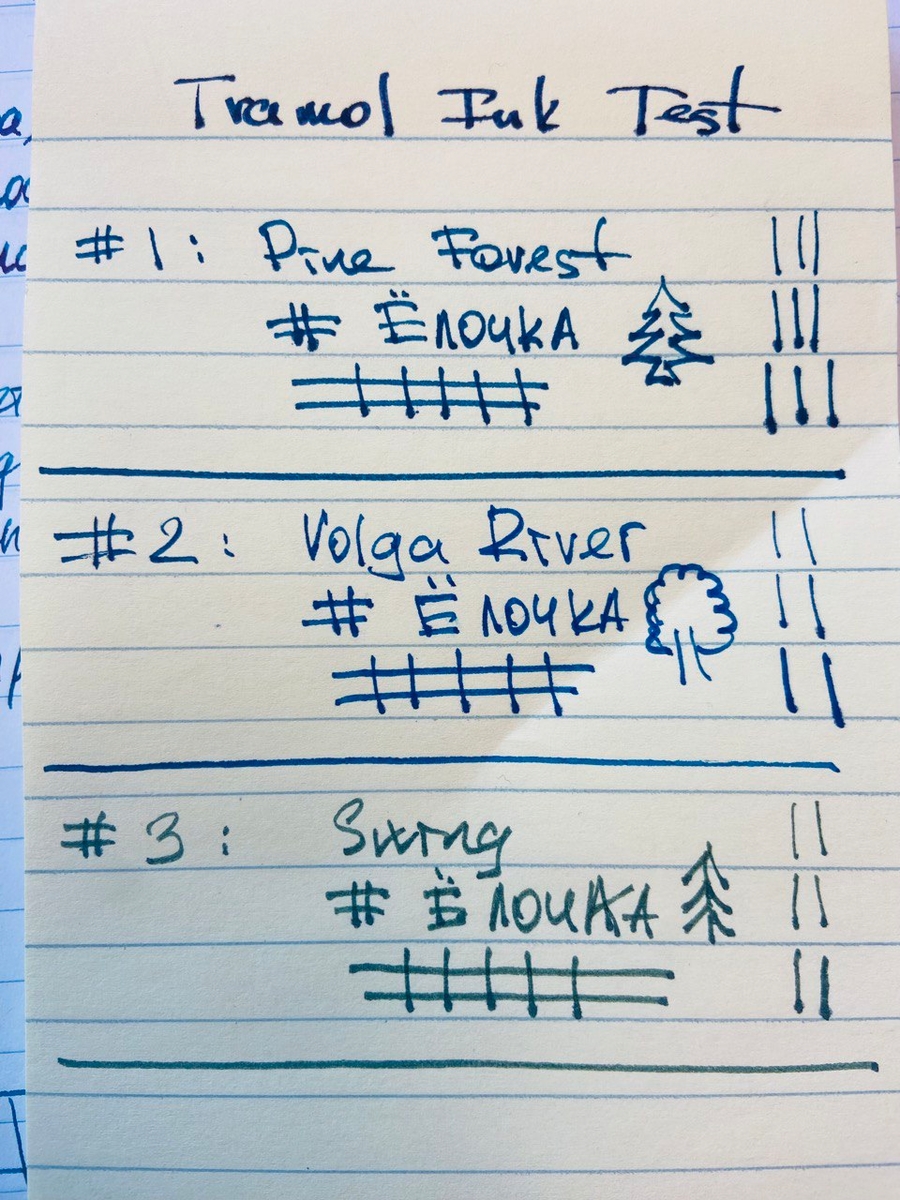 Tramol Ink Test
#1: Pine Forest
# Ёлочка
#2: Volga River
# Ёлочка
#3: Swing
# Ёлочка